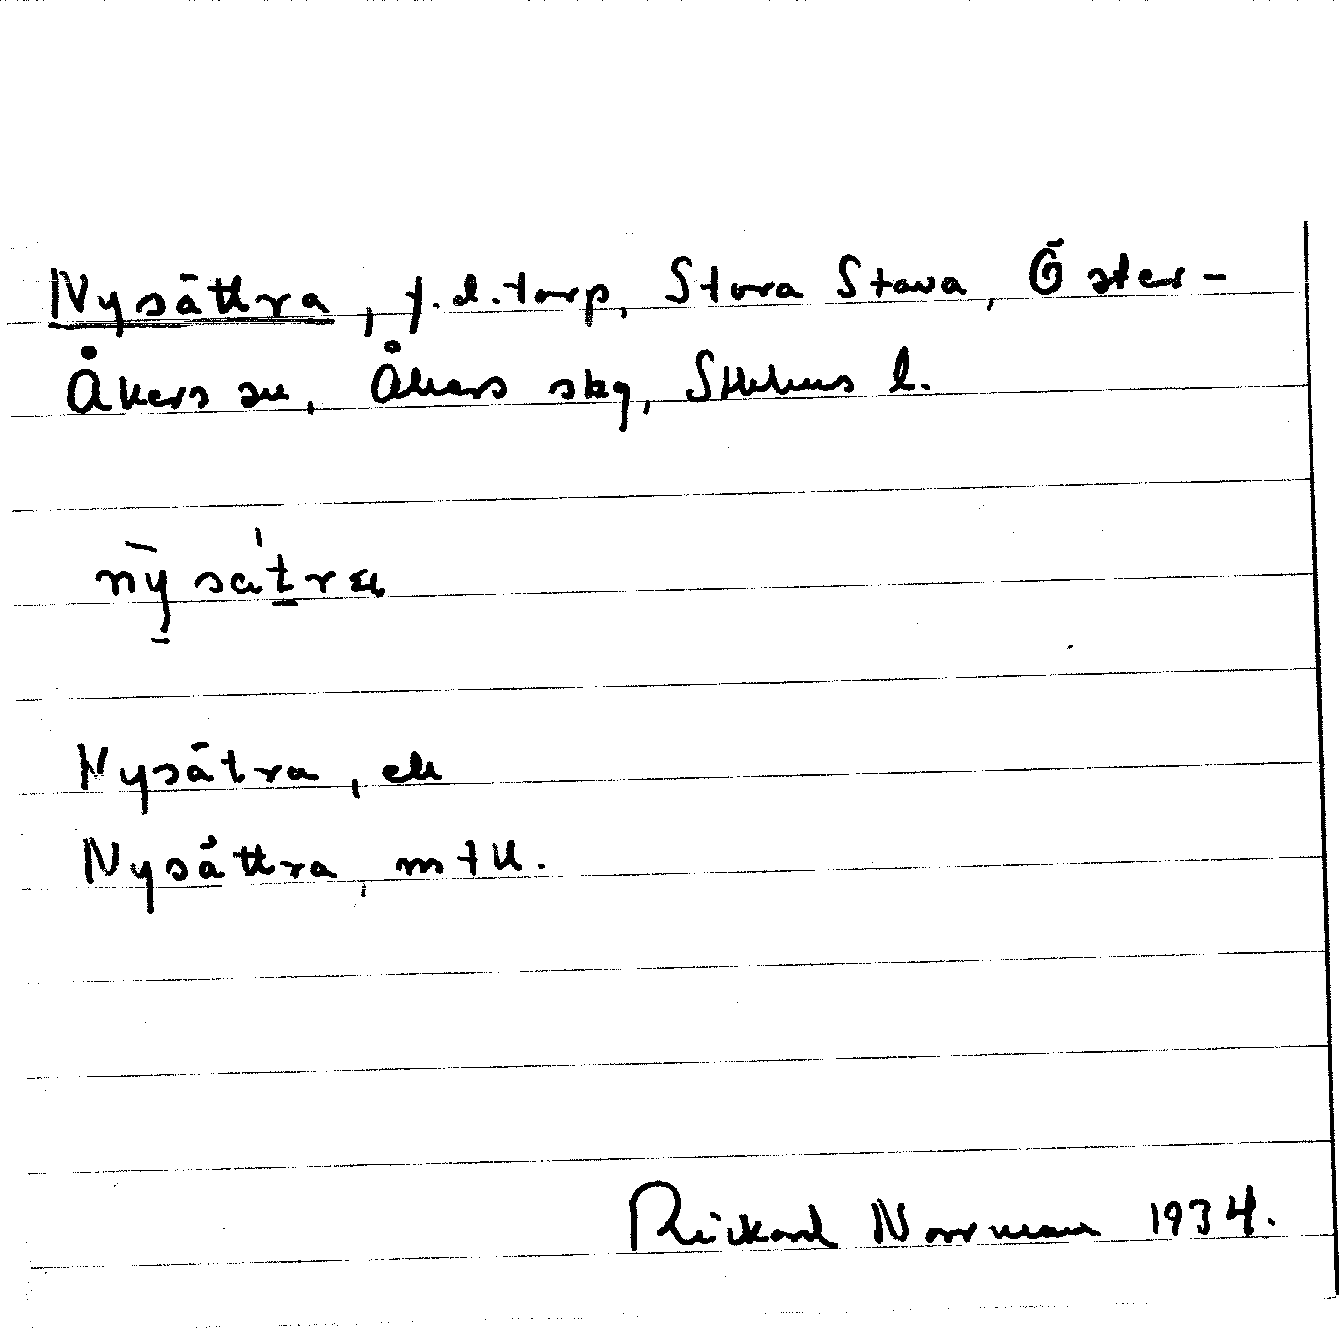 Nysättra, f.d. torp, Stora Stava, Öster-
Åkers sn, Åkers skg, Sthlms l.
nỳsa'tra
Nysätra, ek
Nysättra, mtll.
Rickard Norrman 1934.